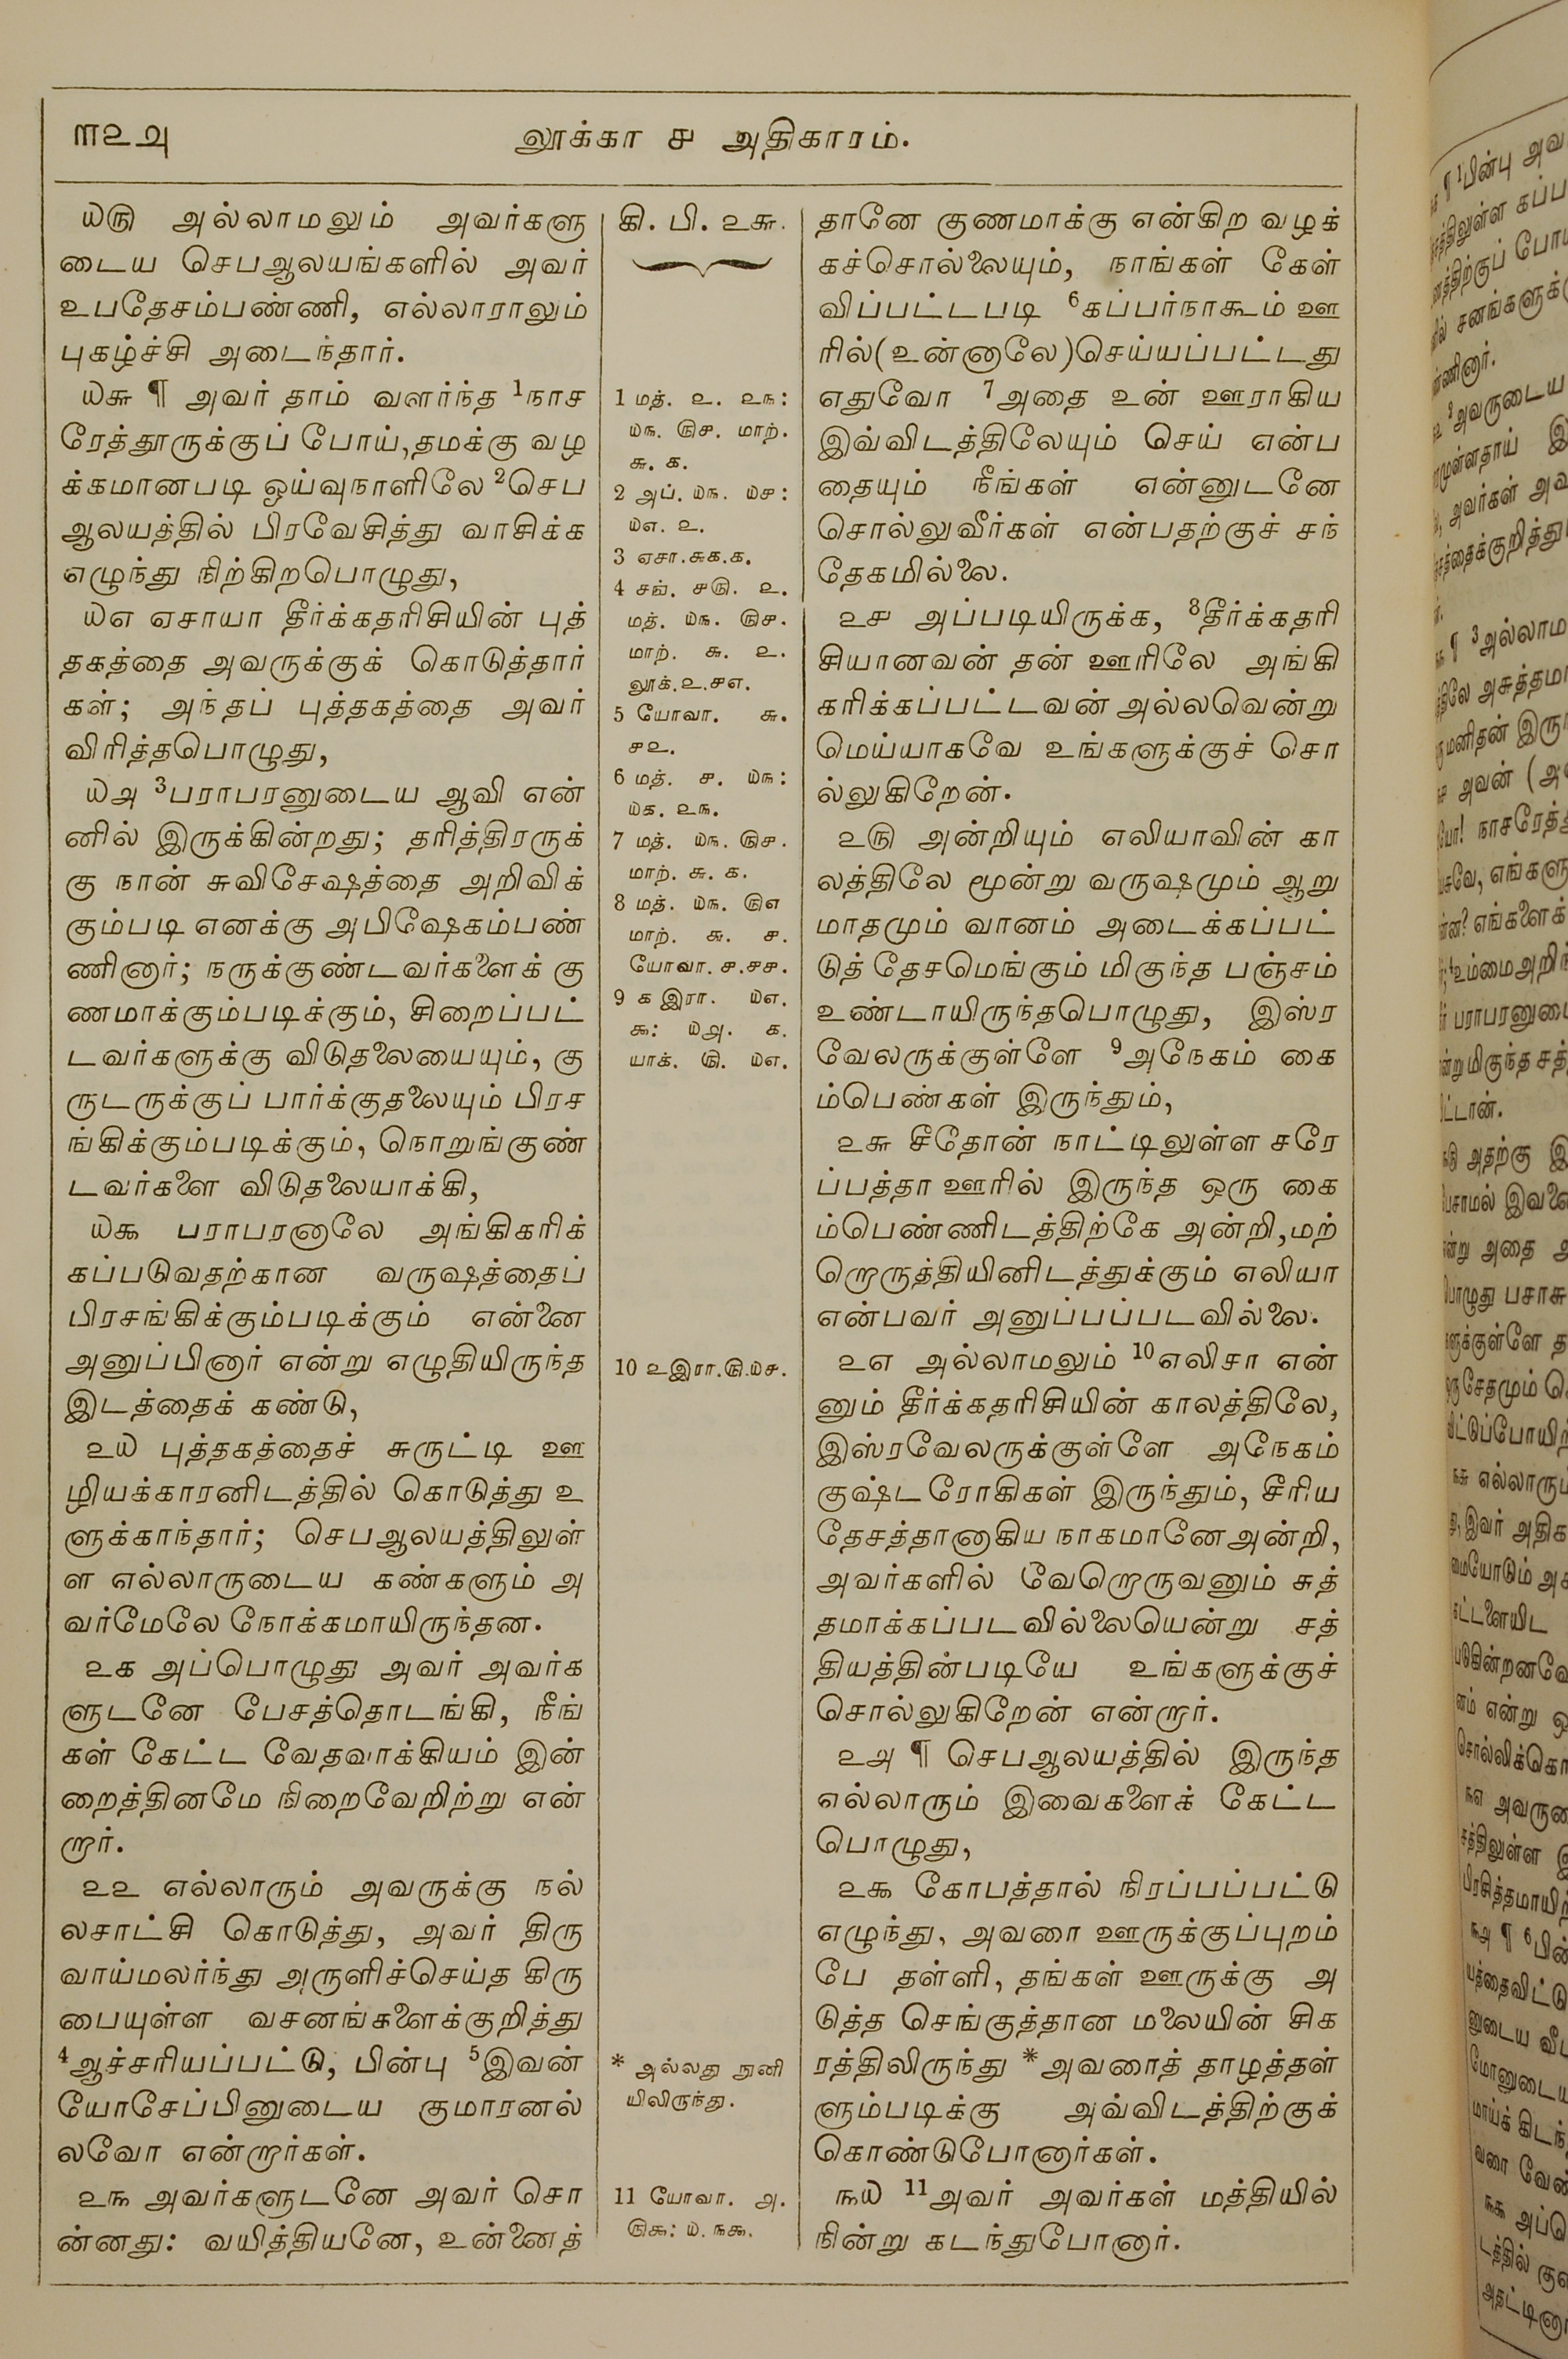 ௱௨௮
லூக்கா ௪ அதிகாரம்.
௰௫ அல்லாமலும் அவர்களு
டைய செபஆலயங்களில் அவர்
உபதேசம்பண்ணி, எல்லாராலும்
புகழ்ச்சி அடைந்தார்.
௰௬ ¶ அவர் தாம் வளர்ந்த 1நாச
ரேத்தூருக்குப் போய்,தமக்கு வழ
க்கமானபடி ஓய்வுநாளிலே 2செப
ஆலயத்தில் பிரவேசித்து வாசிக்க
எழுந்து நிற்கிறபொழுது,
௰௭ ஏசாயா தீர்க்கதரிசியின் புத்
தகத்தை அவருக்குக் கொடுத்தார்
கள்; அந்தப் புத்தகத்தை அவர்
விரித்தபொழுது,
௰௮ 3பராபரனுடைய ஆவி என்
னில் இருக்கின்றது; தரித்திரருக்
கு நான் சுவிசேஷத்தை அறிவிக்
கும்படி எனக்கு அபிஷேகம்பண்
ணினார்; நருக்குண்டவர்களைக் கு
ணமாக்கும்படிக்கும், சிறைப்பட்
டவர்களுக்கு விடுதலையையும், கு
ருடருக்குப் பார்க்குதலையும் பிரச
ங்கிக்கும்படிக்கும், நொறுங்குண்
டவர்களை விடுதலையாக்கி,
௰௯ பராபரனாலே அங்கிகரிக்
கப்படுவதற்கான வருஷத்தைப்
பிரசங்கிக்கும்படிக்கும் என்னை
அனுப்பினார் என்று எழுதியிருந்த
இடத்தைக் கண்டு,
௨௰ புத்தகத்தைச் சுருட்டி ஊ
ழியக்காரனிடத்தில் கொடுத்து உ
ளுக்காந்தார்; செபஆலயத்திலுள்
ள எல்லாருடைய கண்களும் அ
வர்மேலே நோக்கமாயிருந்தன.
௨௧ அப்பொழுது அவர் அவர்க
ளுடனே பேசத்தொடங்கி, நீங்
கள் கேட்ட வேதவாக்கியம் இன்
றைத்தினமே நிறைவேறிற்று என்
றார்.
௨௨ எல்லாரும் அவருக்கு நல்
லசாட்சி கொடுத்து, அவர் திரு
வாய்மலர்ந்து அருளிச்செய்த கிரு
பையுள்ள வசனங்களைக்குறித்து
4ஆச்சரியப்பட்டு, பின்பு 5இவன்
யோசேப்பினுடைய குமாரனல்
லவோ என்றார்கள்.
௨௩ அவர்களுடனே அவர் சொ
ன்னது: வயித்தியனே, உன்னைத்
கி. பி. ௨௬.
1 மத். ௨. ௨௩:
௰௩. ௫௪. மாற்.
௬. ௧.
2 அப். ௰௩. ௰௪:
௰௭. ௨.
3 ஏசா.௬௧.௧.
4 சங். ௪௫. ௨.
மத். ௰௩. ௫௪.
மாற். ௬. ௨.
லூக்.௨.௪௭.
5 யோவா. ௬.
௪௨.
6 மத். ௪. ௰௩:
௰௧. ௨௩.
7 மத். ௰௩. ௫௪.
மாற். ௬. ௧.
8 மத். ௰௩. ௫௭
மாற். ௬. ௪.
யோவா. ௪.௪௪.
9 ௧ இரா. ௰௭.
௯: ௰௮. ௧.
யாக். ௫. ௰௭.
10 ௨இரா.௫.௰௪.
* அல்லது நுனி
யிலிருந்து.
11 யோவா. ௮.
௫௯: ௰. ௩௯.
தானே குணமாக்கு என்கிற வழக்
கச்சொல்லையும், நாங்கள் கேள்
விப்பட்டபடி 6கப்பர்நாகூம் ஊ
ரில்(உன்னாலே)செய்யப்பட்டது
எதுவோ 7அதை உன் ஊராகிய
இவ்விடத்திலேயும் செய் என்ப
தையும் நீங்கள் என்னுடனே
சொல்லுவீர்கள் என்பதற்குச் சந்
தேகமில்லை.
௨௪ அப்படியிருக்க, 8தீர்க்கதரி
சியானவன் தன் ஊரிலே அங்கி
கரிக்கப்பட்டவன் அல்லவென்று
மெய்யாகவே உங்களுக்குச் சொ
ல்லுகிறேன்.
௨௫ அன்றியும் எலியாவின் கா
லத்திலே மூன்று வருஷமும் ஆறு
மாதமும் வானம் அடைக்கப்பட்
டுத் தேசமெங்கும் மிகுந்த பஞ்சம்
உண்டாயிருந்தபொழுது, இஸ்ர
வேலருக்குள்ளே 9அநேகம் கை
ம்பெண்கள் இருந்தும்,
௨௬ சீதோன் நாட்டிலுள்ள சரே
ப்பத்தா ஊரில் இருந்த ஒரு கை
ம்பெண்ணிடத்திற்கே அன்றி,மற்
றொருத்தியினிடத்துக்கும் எலியா
என்பவர் அனுப்பப்படவில்லை.
௨௭ அல்லாமலும் 10எலிசா என்
னும் தீர்க்கதரிசியின் காலத்திலே,
இஸ்ரவேலருக்குள்ளே அநேகம்
குஷ்டரோகிகள் இருந்தும், சீரிய
தேசத்தானாகிய நாகமானேஅன்றி,
அவர்களில் வேறொருவனும் சுத்
தமாக்கப்படவில்லையென்று சத்
தியத்தின்படியே உங்களுக்குச்
சொல்லுகிறேன் என்றார்.
௨௮ ¶ செபஆலயத்தில் இருந்த
எல்லாரும் இவைகளைக் கேட்ட
பொழுது,
௨௯ கோபத்தால் நிரப்பப்பட்டு
எழுந்து, அவரை ஊருக்குப்புறம்
பே தள்ளி, தங்கள் ஊருக்கு அ
டுத்த செங்குத்தான மலையின் சிக
ரத்திலிருந்து *அவரைத் தாழத்தள்
ளும்படிக்கு அவ்விடத்திற்குக்
கொண்டுபோனார்கள்.
௩௰ 11அவர் அவர்கள் மத்தியில்
நின்று கடந்துபோனார்.